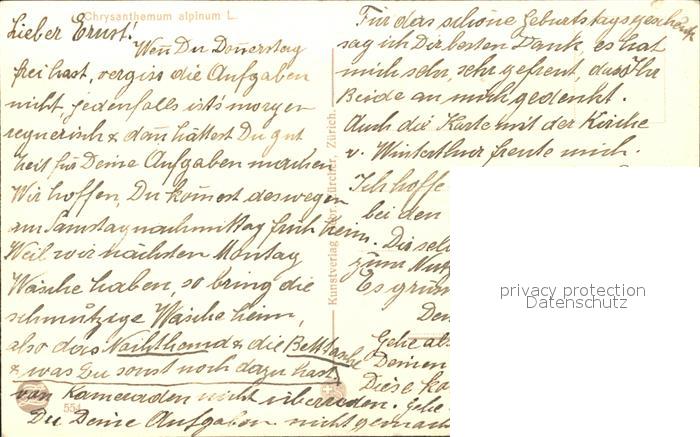 Chrysanthemum alpinum L.
Lieber Ernst!
Wen̄ Du Donerstag
frei hast, vergiss die Aufgaben
nicht, jedenfalls ist's morgen
regnerisch & dan̄ hättest Du gut
Zeit für Deine Aufgaben machen
Wir hoffen, Du kom̄est deswegen
am Samstagnachmittag früh heim.
Weil wir nächsten Montag
Wäsche haben, so bring die
schmutzige Wäsche heim,
also das Nachthemd & die Bettasche
& was Du sonst noch dazu hast,
von Kameraden nicht überreden. Gehe
Du Deine Aufgaben nicht gemach
551
Kunstverlag Gebr. Zürcher, Zürich.
Für das schöne Geburtstagsgeschenk
sag ich Dir besten Dank, es hat
mich sehr, sehr gefreut, dass Ihr
Beide an mich gedenkt.
Auch die Karte mit der Kirche
v. Winterthur freute mich.
Ich hoffe
bei den
Dieselb
zum Nutz
Es grüs
Dei
Gehe als
Deinen
Diese Ka
privacy protection
Datenschutz